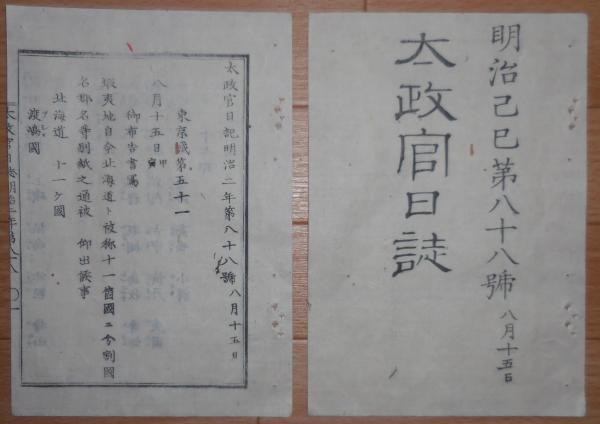 明治己巳第八十八號 八月十五日
太政官日誌
太政官日記明治二年第八十八號 八月十五日
東京城第五十一
八月十五日甲寅
御布告書寫
蝦夷地自今北海道ト被称十一箇國ニ分割國
名郡名等別紙之通被 仰出候事
北海道 十一ケ國
渡嶋國